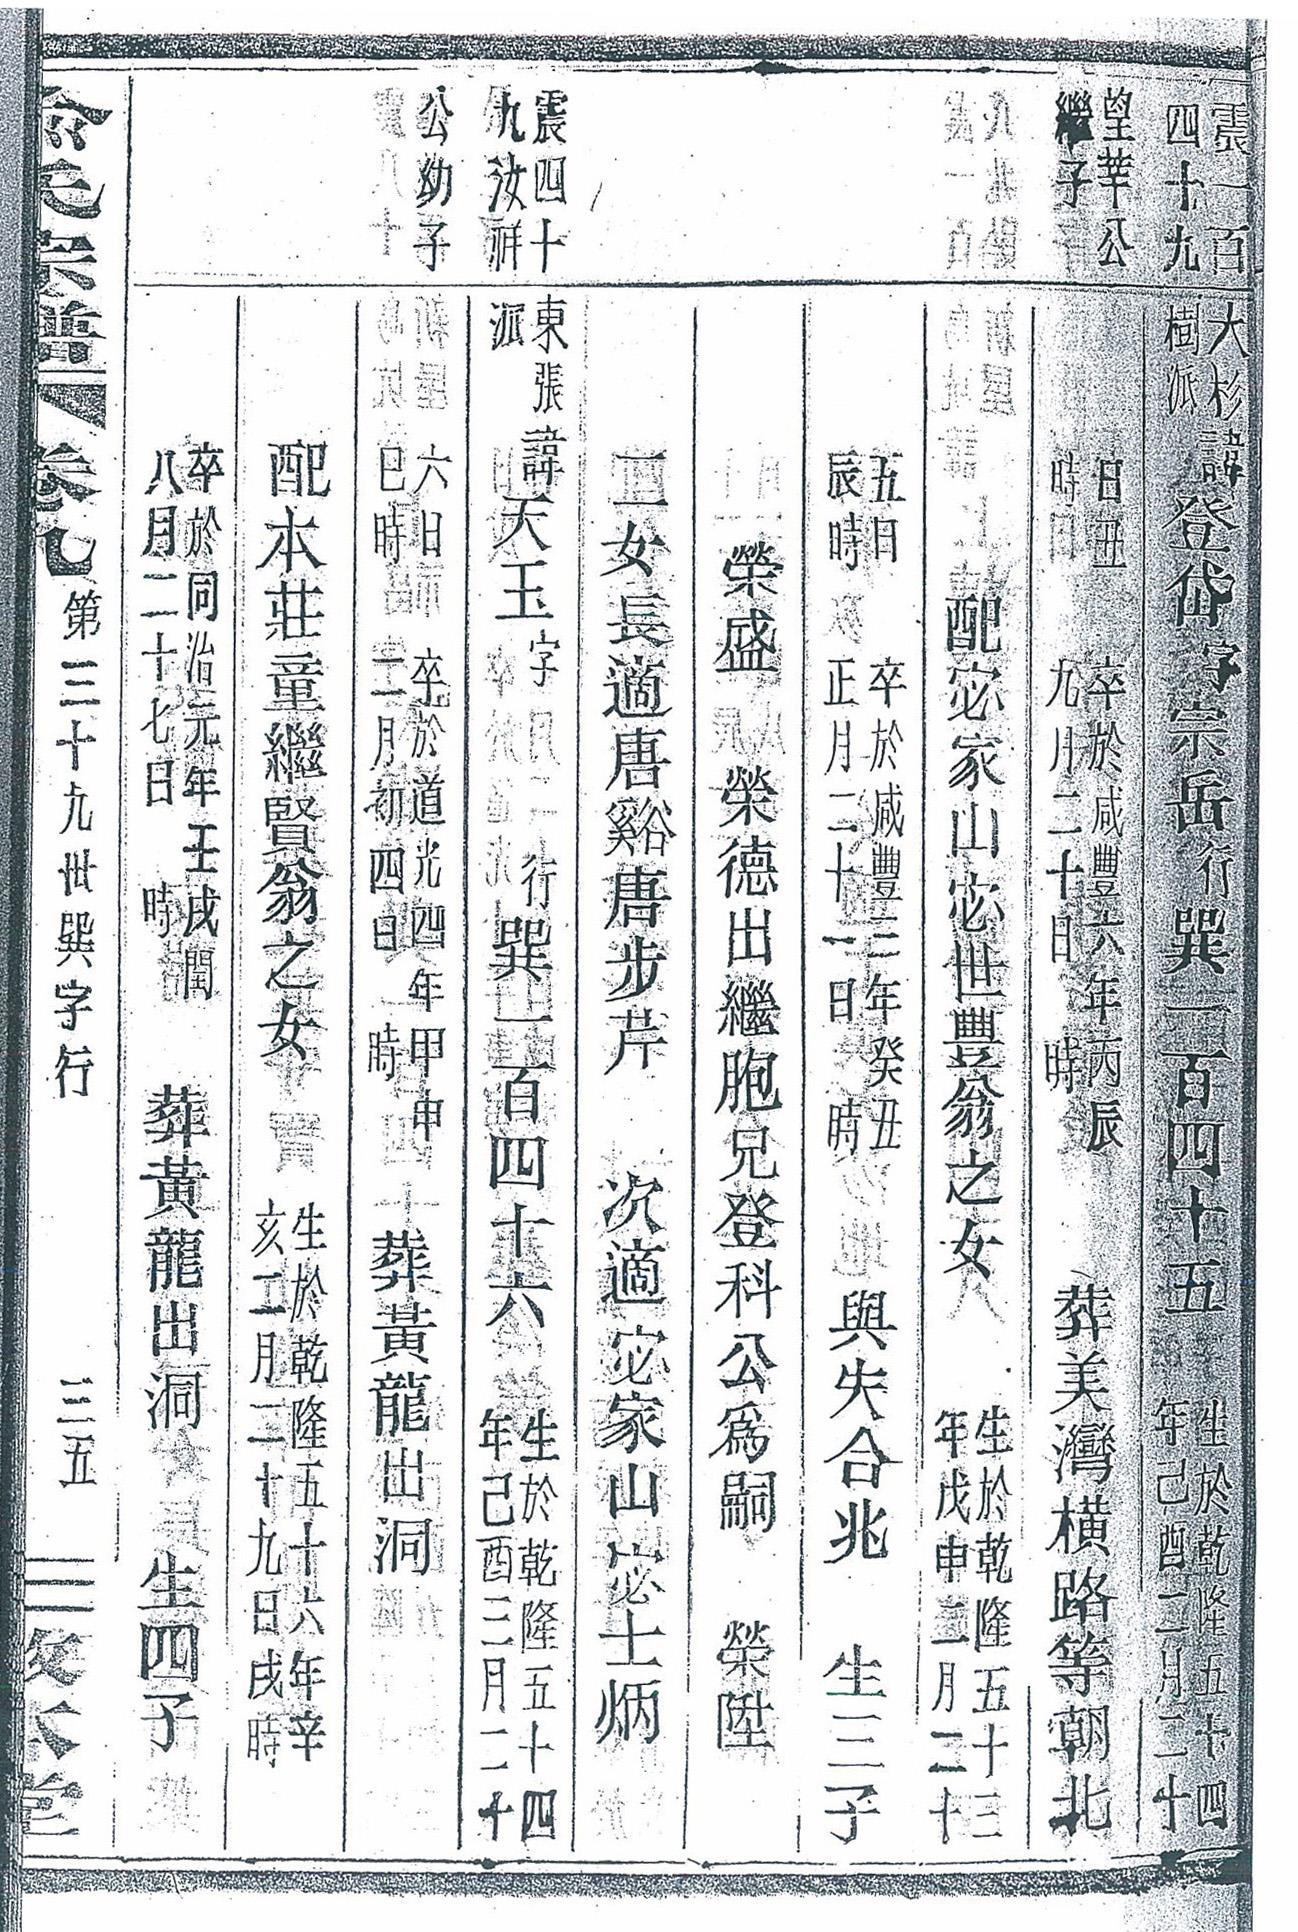 震一百
四十九
望莘公
繼子
大杉諱登岱字宗岳行巽一百四十五生於乾隆五十四
樹派年己酉二月二十
日丑
時
卒於咸豐六年丙辰
九月二十日 時
葬美灣横路等朝北
配宓家山宓世豐翁之女
生於乾隆五十三
年戊申二月二十
五日
辰時
卒於咸豐三年癸丑
正月二十一日 時
與失合兆 生三子
榮盛 榮德出繼胞兄登科公爲嗣 榮陞
二女長適唐谿唐步芹 次適宓家山宓士炳
震四十
九汝祥
公幼子
東張諱天玉字 行巽一百四十六
派
生於乾隆五十四
年己酉三月二十
六日
巳時
卒於道光四年甲申
二月初四日 時
葬黃龍出洞
配本莊童繼賢翁之女
生於乾隆五十六年辛
亥二月二十九日戌時
卒於同治元年壬戌閏
八月二十七日 時
葬黃龍出洞 生四子
俞氏宗譜 卷九 第三十九世巽字行 三五 敦本堂